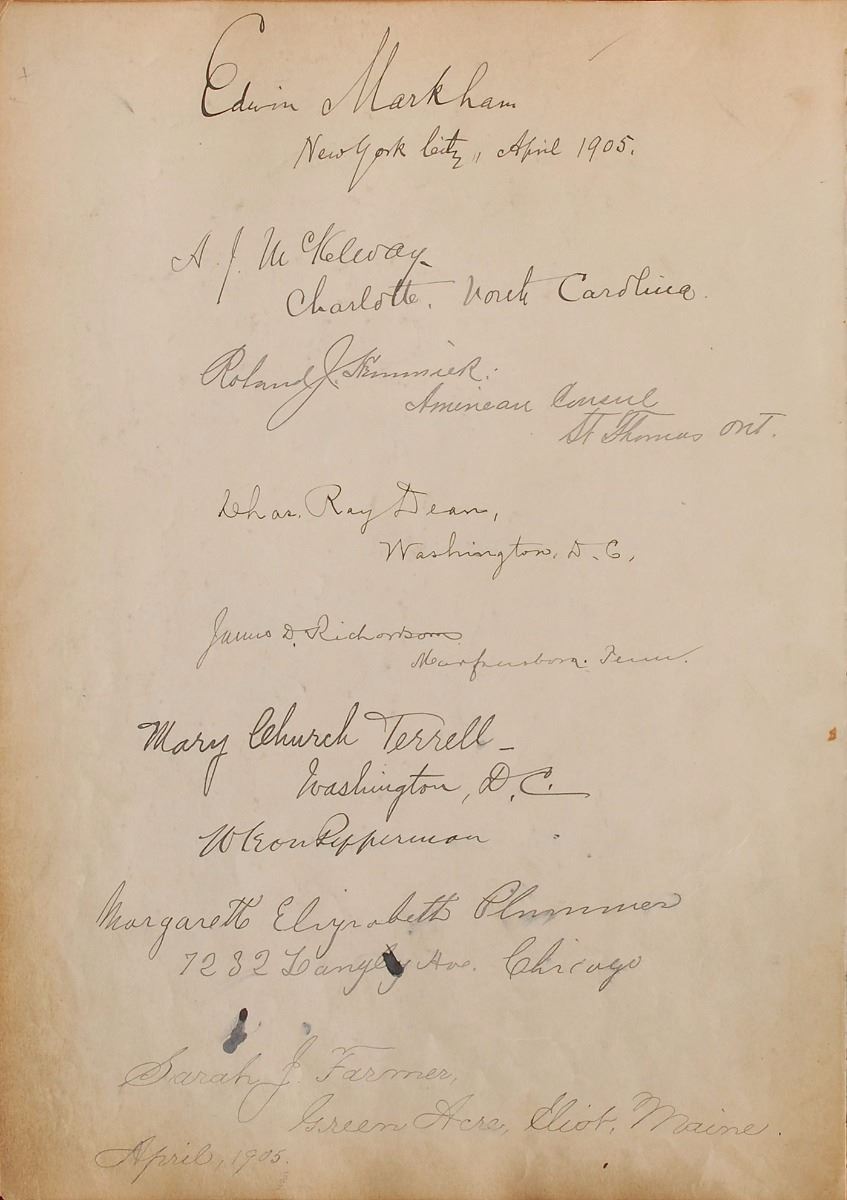 Edwin Markham
New York City, April 1905.
A. J. McKelway
Charlotte, North Carolina.
Roland J.
American Consul
St Thomas Ont.
Chas. Ray Dean,
Washington, D. C.,
James D. Richardson
Murfreesboro. Tenn.
Mary Church Terrell
Washington, D.C.
W Leon Pepperman
Margarett Elizabeth Plummer
7232 Langley Ave. Chicago
Sarah J. Farmer,
Green Acre, Eliot, Maine.
April, 1905.